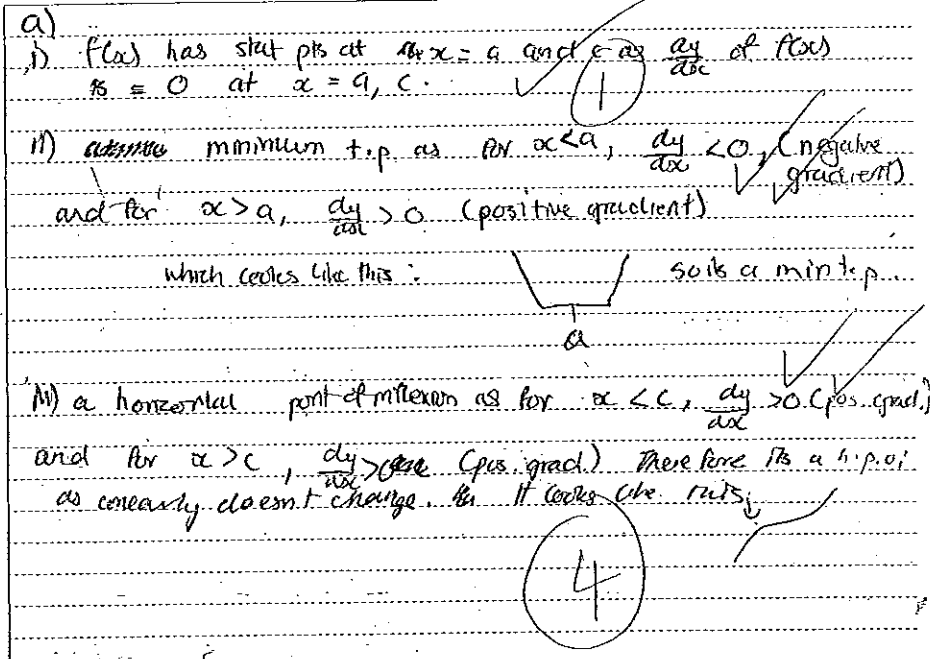 a)
i) f(x) has stat pts at x = a and c as dy/dx of f(x)
is = 0 at x = a, c.
1
ii) minimum t.p. as for x<a, dy/dx <0, (negative gradient)
and for x>a, dy/dx >0 (positive gradient)
which looks like this: so its a min t.p.
a
iii) a horizontal point of inflexion as for x < c, dy/dx >0 (pos. grad.)
and for x>c, dy/dx > (pos. grad) Therefore its a h.p.o.i
as doesn't change. It looks like this:
4